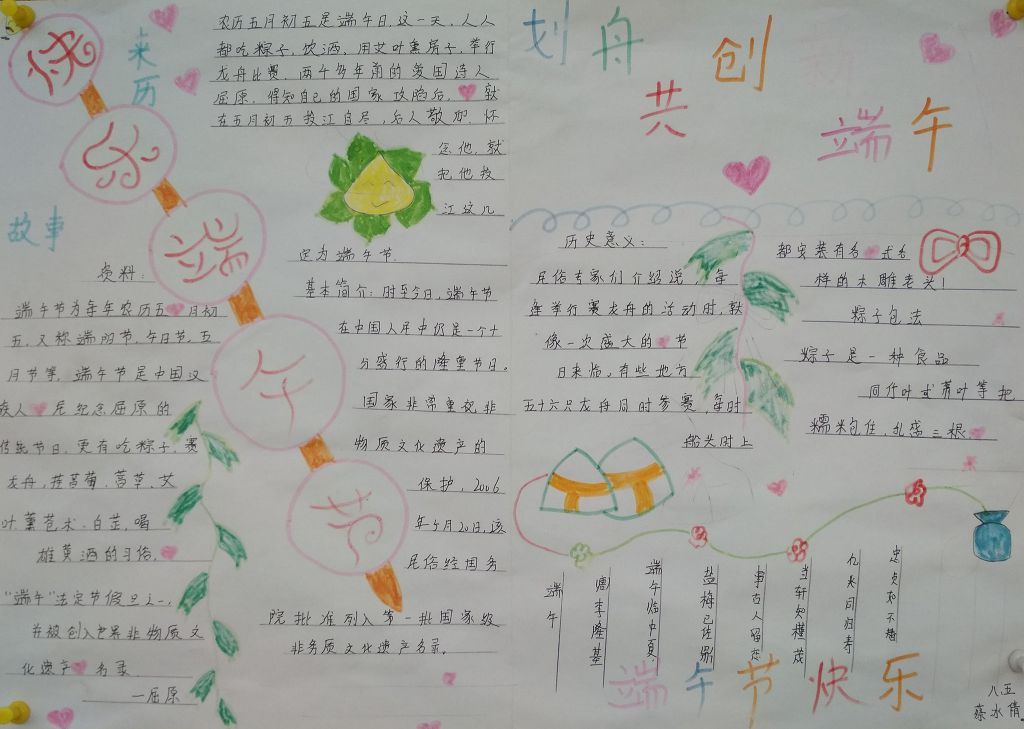 快乐端午节
来历
农历五月初五是端午日这一天,人人
都吃粽子,饮酒,用艾叶熏房子,举行
龙舟比赛.两千多年前的爱国诗人
屈原,得知自己的国家攻陷后,就
在五月初五投江自尽,后人敬仰.怀
念他,就
把他投
江这儿
定为端午节.
基本简介:时至今日,端午节
在中国人民中仍是一个十
分盛行的隆重节日。
国家非常重视非
物质文化遗产的
保护,2006
年5月20日,该
民俗经国务
院批准列入第一批国家级
非务质文化遗产名录.
故事
资料:
端午节为每年农历五月初
五,又称端阳节,午日节,五
月节等,端午节是中国汉
族人民纪念屈原的
传统节日,更有吃粽子,赛
龙舟,挂菖蒲.蒿草.艾
叶,薰苍术.白芷,喝
雄黄酒的习俗,
“端午”法定节假日之一,
并被创入世界非物质文
化遗产名录
一屈原
划舟共创
端午
历史意义:
民俗专家们介绍说,每
逢举行赛龙舟的活动时,就
像一次盛大的节
日来临,有些地方
五十六只龙舟同时参赛,每时
船头时上
都安装有各式各
样的木雕老头!
粽子包法
粽子是一种食品
同竹叶或箬叶等把
糯米包住,扎成三根
端午
唐李隆基
端午临中夏,
盐梅已佐鼎
事古人留迹
当轩知槿茂
亿兆同归寿
忠贞如不替
端午节快乐
八五
蔡冰倩.